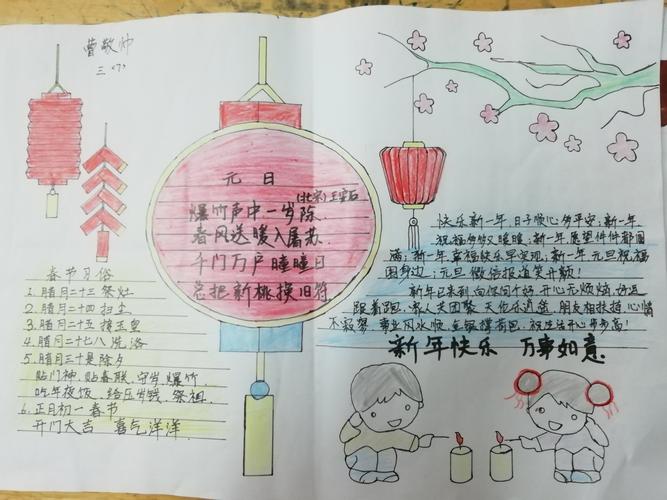 曹敬帅
三〈7〉
元日
(北宋)王安石
爆竹声中一岁除
春风送暖入屠苏
千门万户曈曈日
总把新桃换旧符
春节习俗
1.腊月二十三祭灶
2.腊月二十四扫尘
3.腊月二十五接玉皇
4.腊月二十七八洗浴
5.腊月三十是除夕
贴门神,贴春联,守岁,爆竹
吃年夜饭,给压岁钱,祭祖
6.正月初一春节
开门大吉 喜气洋洋
快乐新一年,日子顺心多平安;新一年
祝福多多又暖暖;新一年愿望件件都圆
满;新一年幸福快乐早实现;新一年元旦祝福
围身边;元旦微信报道笑开颜!
新年已来到,向你问个好,开心无烦恼,好运
跟着跑,家人大团聚,天伦乐逍遥,朋友相扶持,心情
不寂寞,事业风水顺,金银撑荷包,祝生活开心步步高!
新年快乐 万事如意